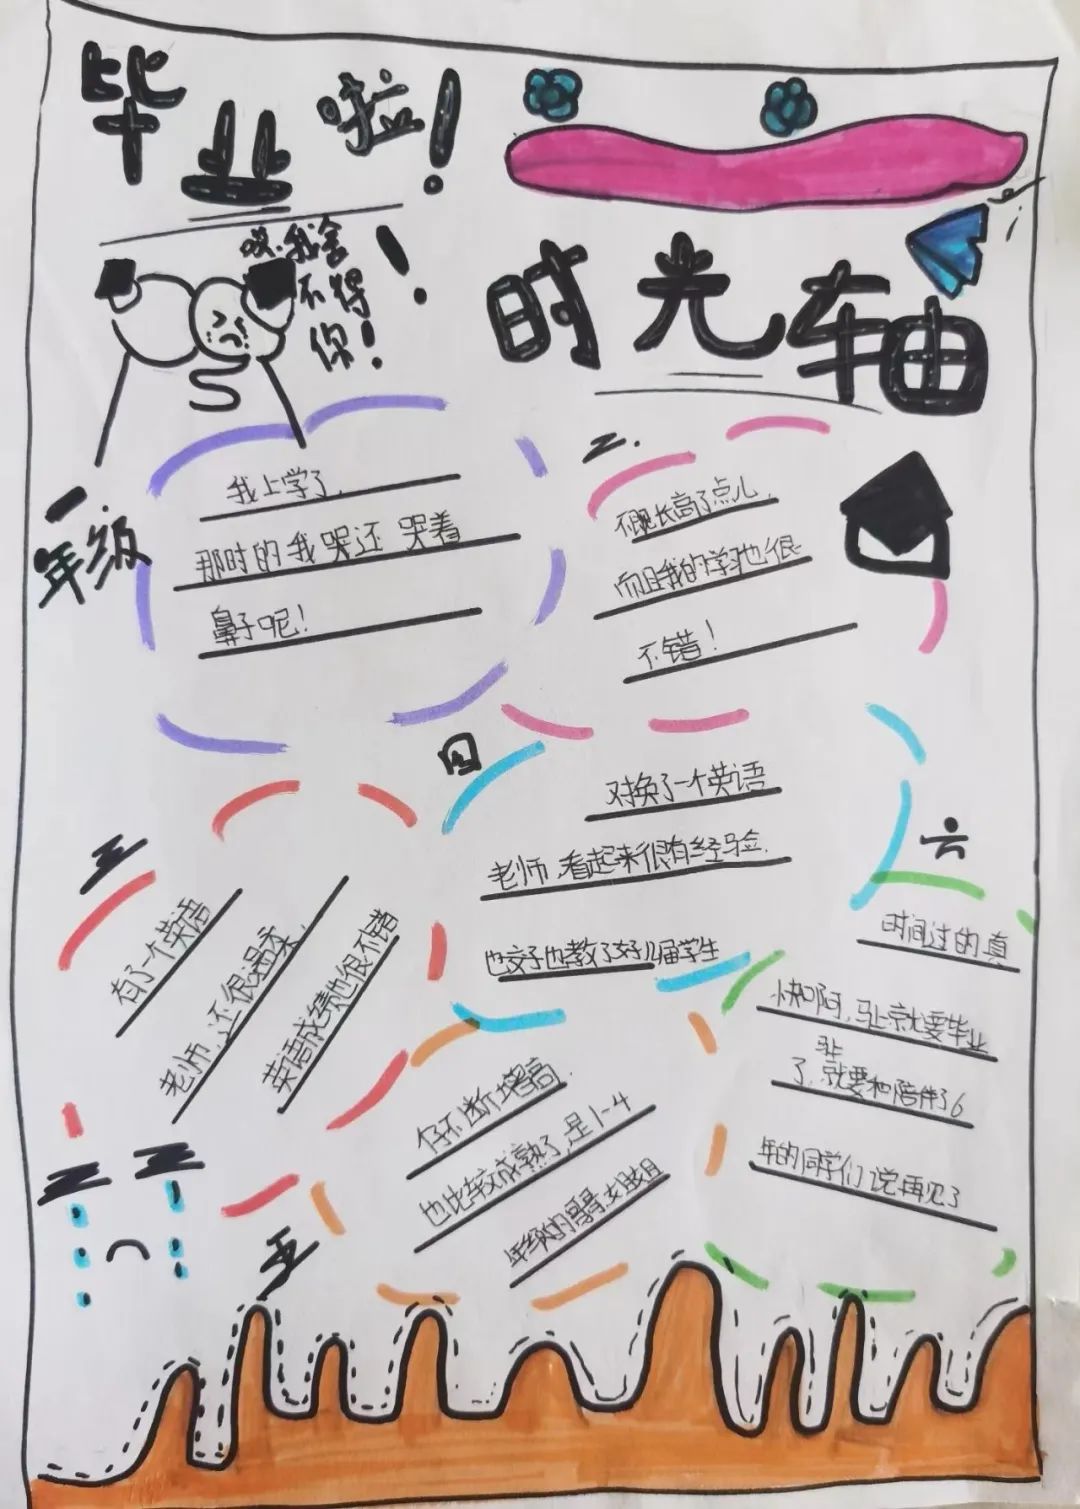 毕业啦!
哎.我舍
不得
你!
!
时光轴
一
年级
我上学了.
那时的我哭还哭着
鼻子呢!
二.
不见长高了点儿,
而且我的学习也很
不错!
三
有了一个英语
老师,还很温柔,
英语成绩也很不错
四
又换了一个英语
老师,看起来很有经验.
也教了好几届学生
五
个子不断增高.
也比较成熟了,是1-4
年级的哥哥姐姐
六
时间过的真
快啊,马上就要毕业
了,马上就要和陪伴了6
年的同学们说再见了